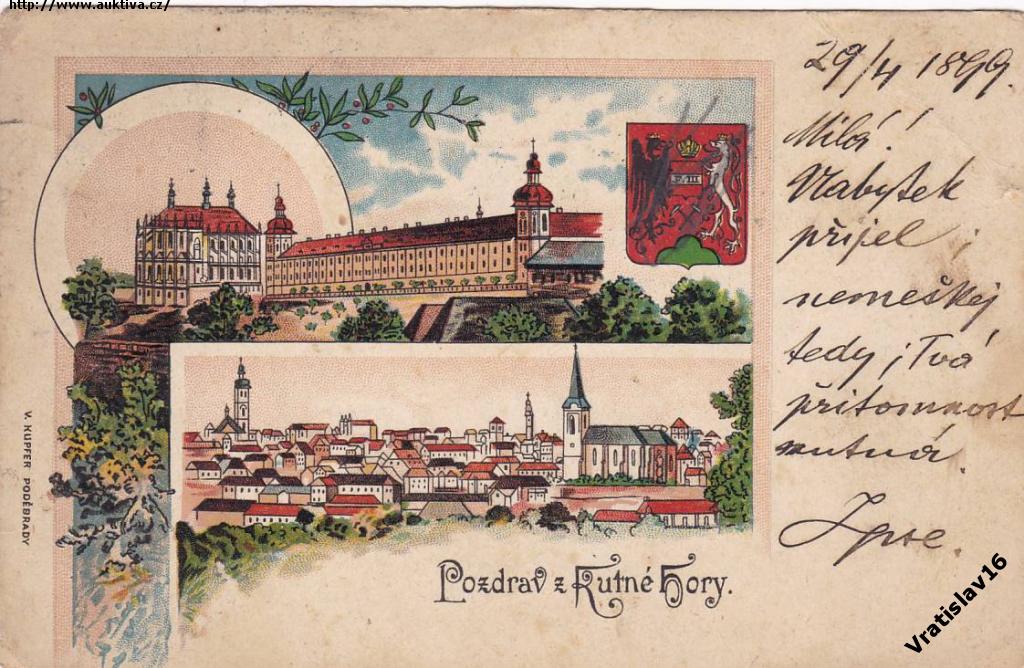 http://www.auktiva.cz/
29/4 1899.
Milá!
Nábytek
přijel
nemeškej
tedy; Tvá
přítomnost
nutná.
Ipse.
V. KUPFER PODĚBRADY
Pozdrav z Kutné Hory.
Vratislav16